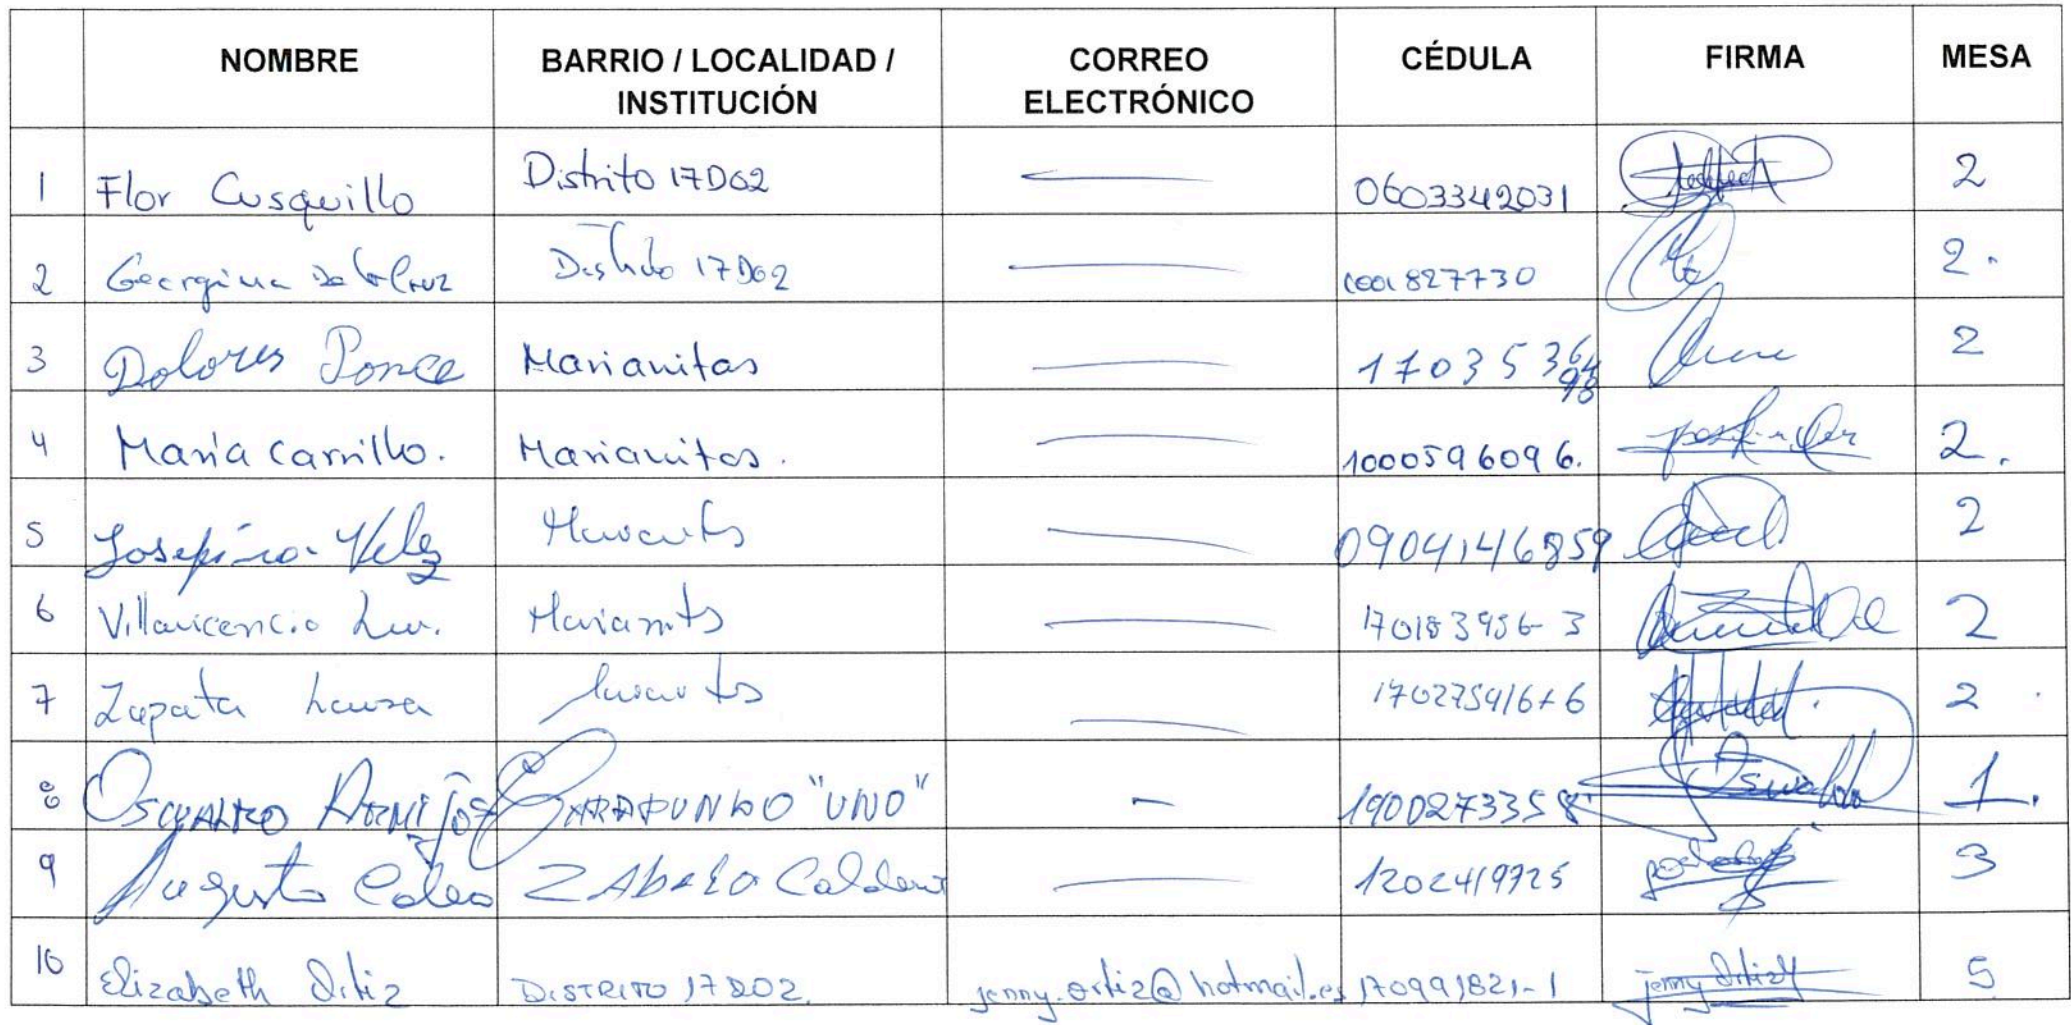 NOMBRE BARRIO / LOCALIDAD / INSTITUCIÓN CORREO ELECTRÓNICO CÉDULA FIRMA MESA
1 Flor Cusquillo Distrito 17D02 0603342031 2
2 Georgina De la Cruz Distrito 17D02 827730 2.
3 Dolores Ponce Marianitas 2
4 Maria Carrillo. Marianitas. 1000596096. 2.
5 Josefina Velez 0904146859 2
6 Villavicencio Marianitas 2
7 Zapata Laura 2
8 Oswaldo Armijos CARAPUNGO "UNO" 1900273358 Oswaldo 1.
9 Augusto 3
10 Elizabeth Ortiz DISTRITO 17D02. jenny.ortiz@hotmail.es 170991821-1 jenny Ortiz 5